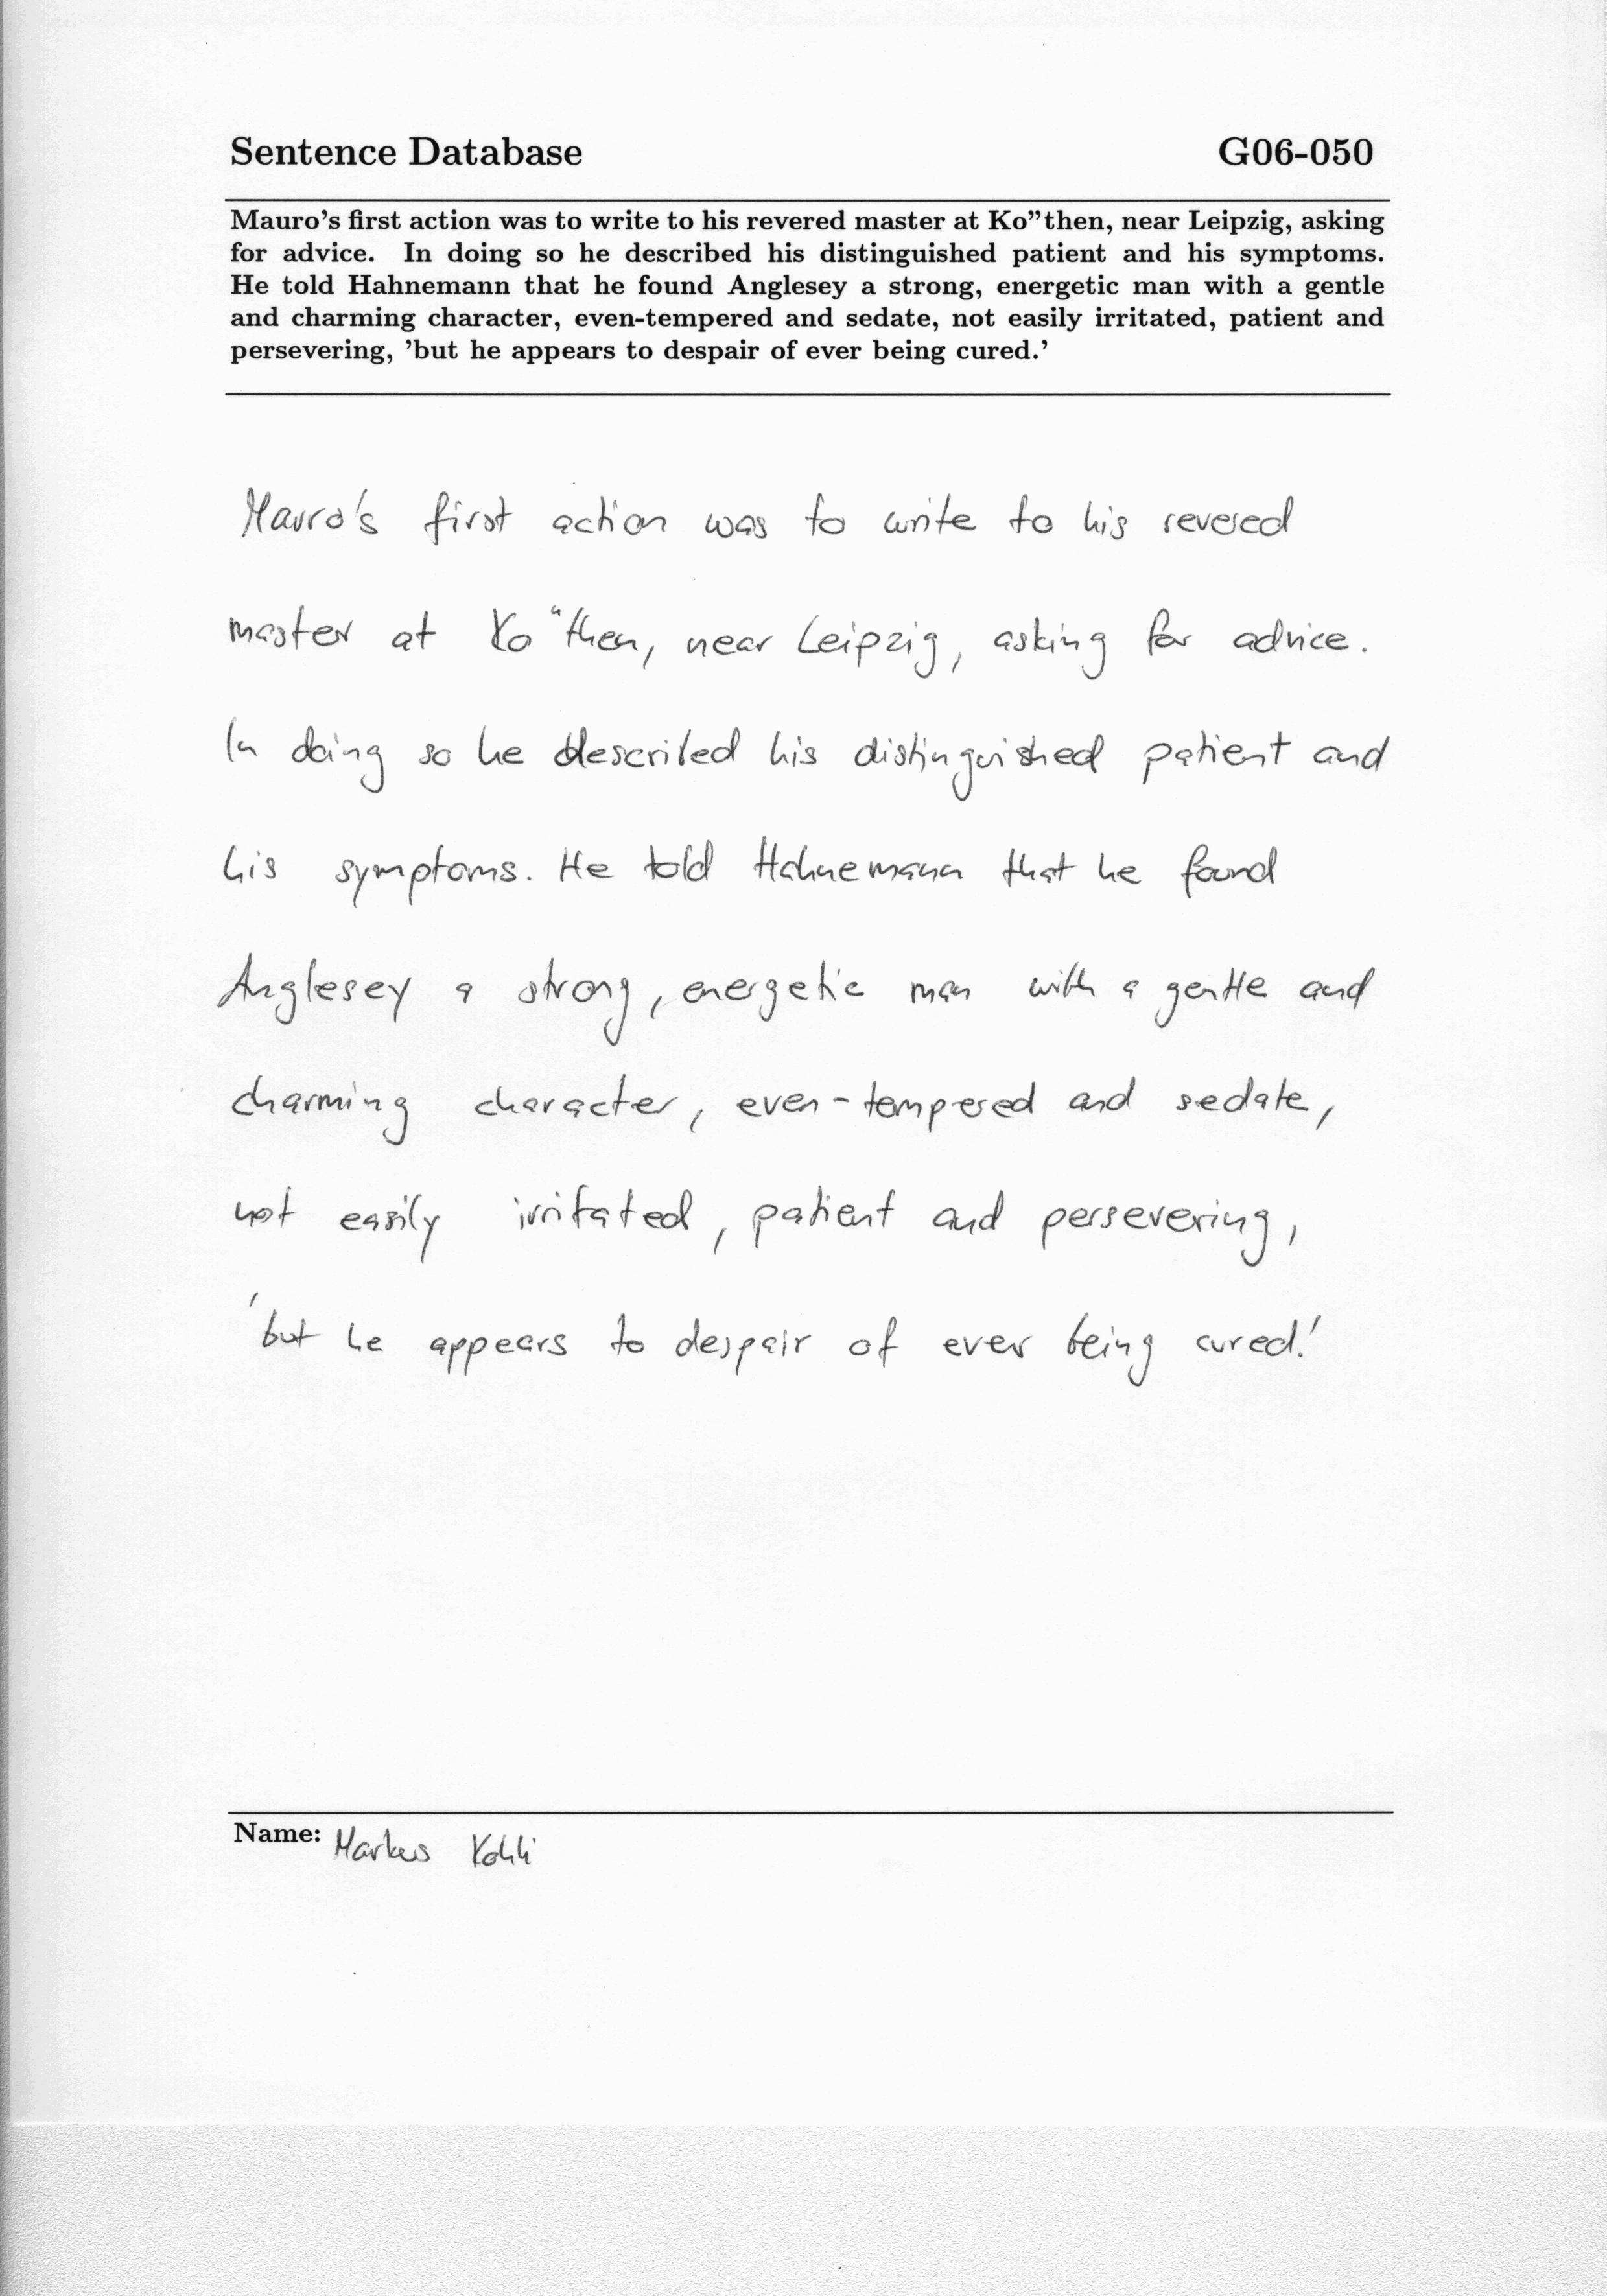 Sentence Database G06-050
Mauro's first action was to write to his revered master at Ko"then, near Leipzig, asking
for advice. In doing so he described his distinguished patient and his symptoms.
He told Hahnemann that he found Anglesey a strong, energetic man with a gentle
and charming character, even-tempered and sedate, not easily irritated, patient and
persevering, 'but he appears to despair of ever being cured.'
Mauro's first action was to write to his revered
master at Ko"then, near Leipzig, asking for advice.
In doing so he described his distinguished patient and
his symptoms. He told Hahnemann that he found
Anglesey a strong, energetic man with a gentle and
charming character, even-tempered and sedate,
not easily irritated, patient and persevering,
'but he appears to despair of ever being cured.'
Name: Markus Kohli